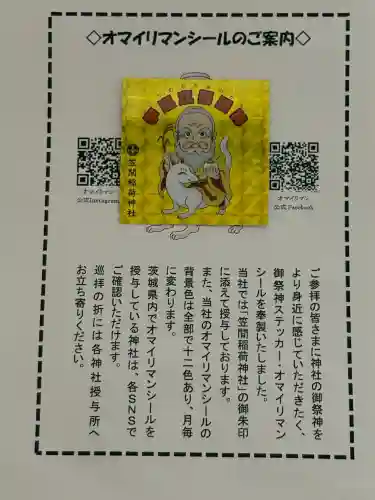 ◇オマイリマンシールのご案内◇
笠間稲荷神社
オマイリマン
公式Instagram
オマイリマン
公式Facebook
ご参拝の皆さまに神社の御祭神を
より身近に感じていただきたく、
御祭神ステッカー・オマイリマン
シールを奉製いたしました。
当社では「笠間稲荷神社」の御朱印
に添えて授与しております。
また、当社のオマイリマンシールの
背景色は全部で十二色あり、月毎
に変わります。
茨城県内でオマイリマンシールを
授与している神社は、各SNSで
ご確認いただけます。
巡拝の折には各神社授与所へ
お立ち寄りください。